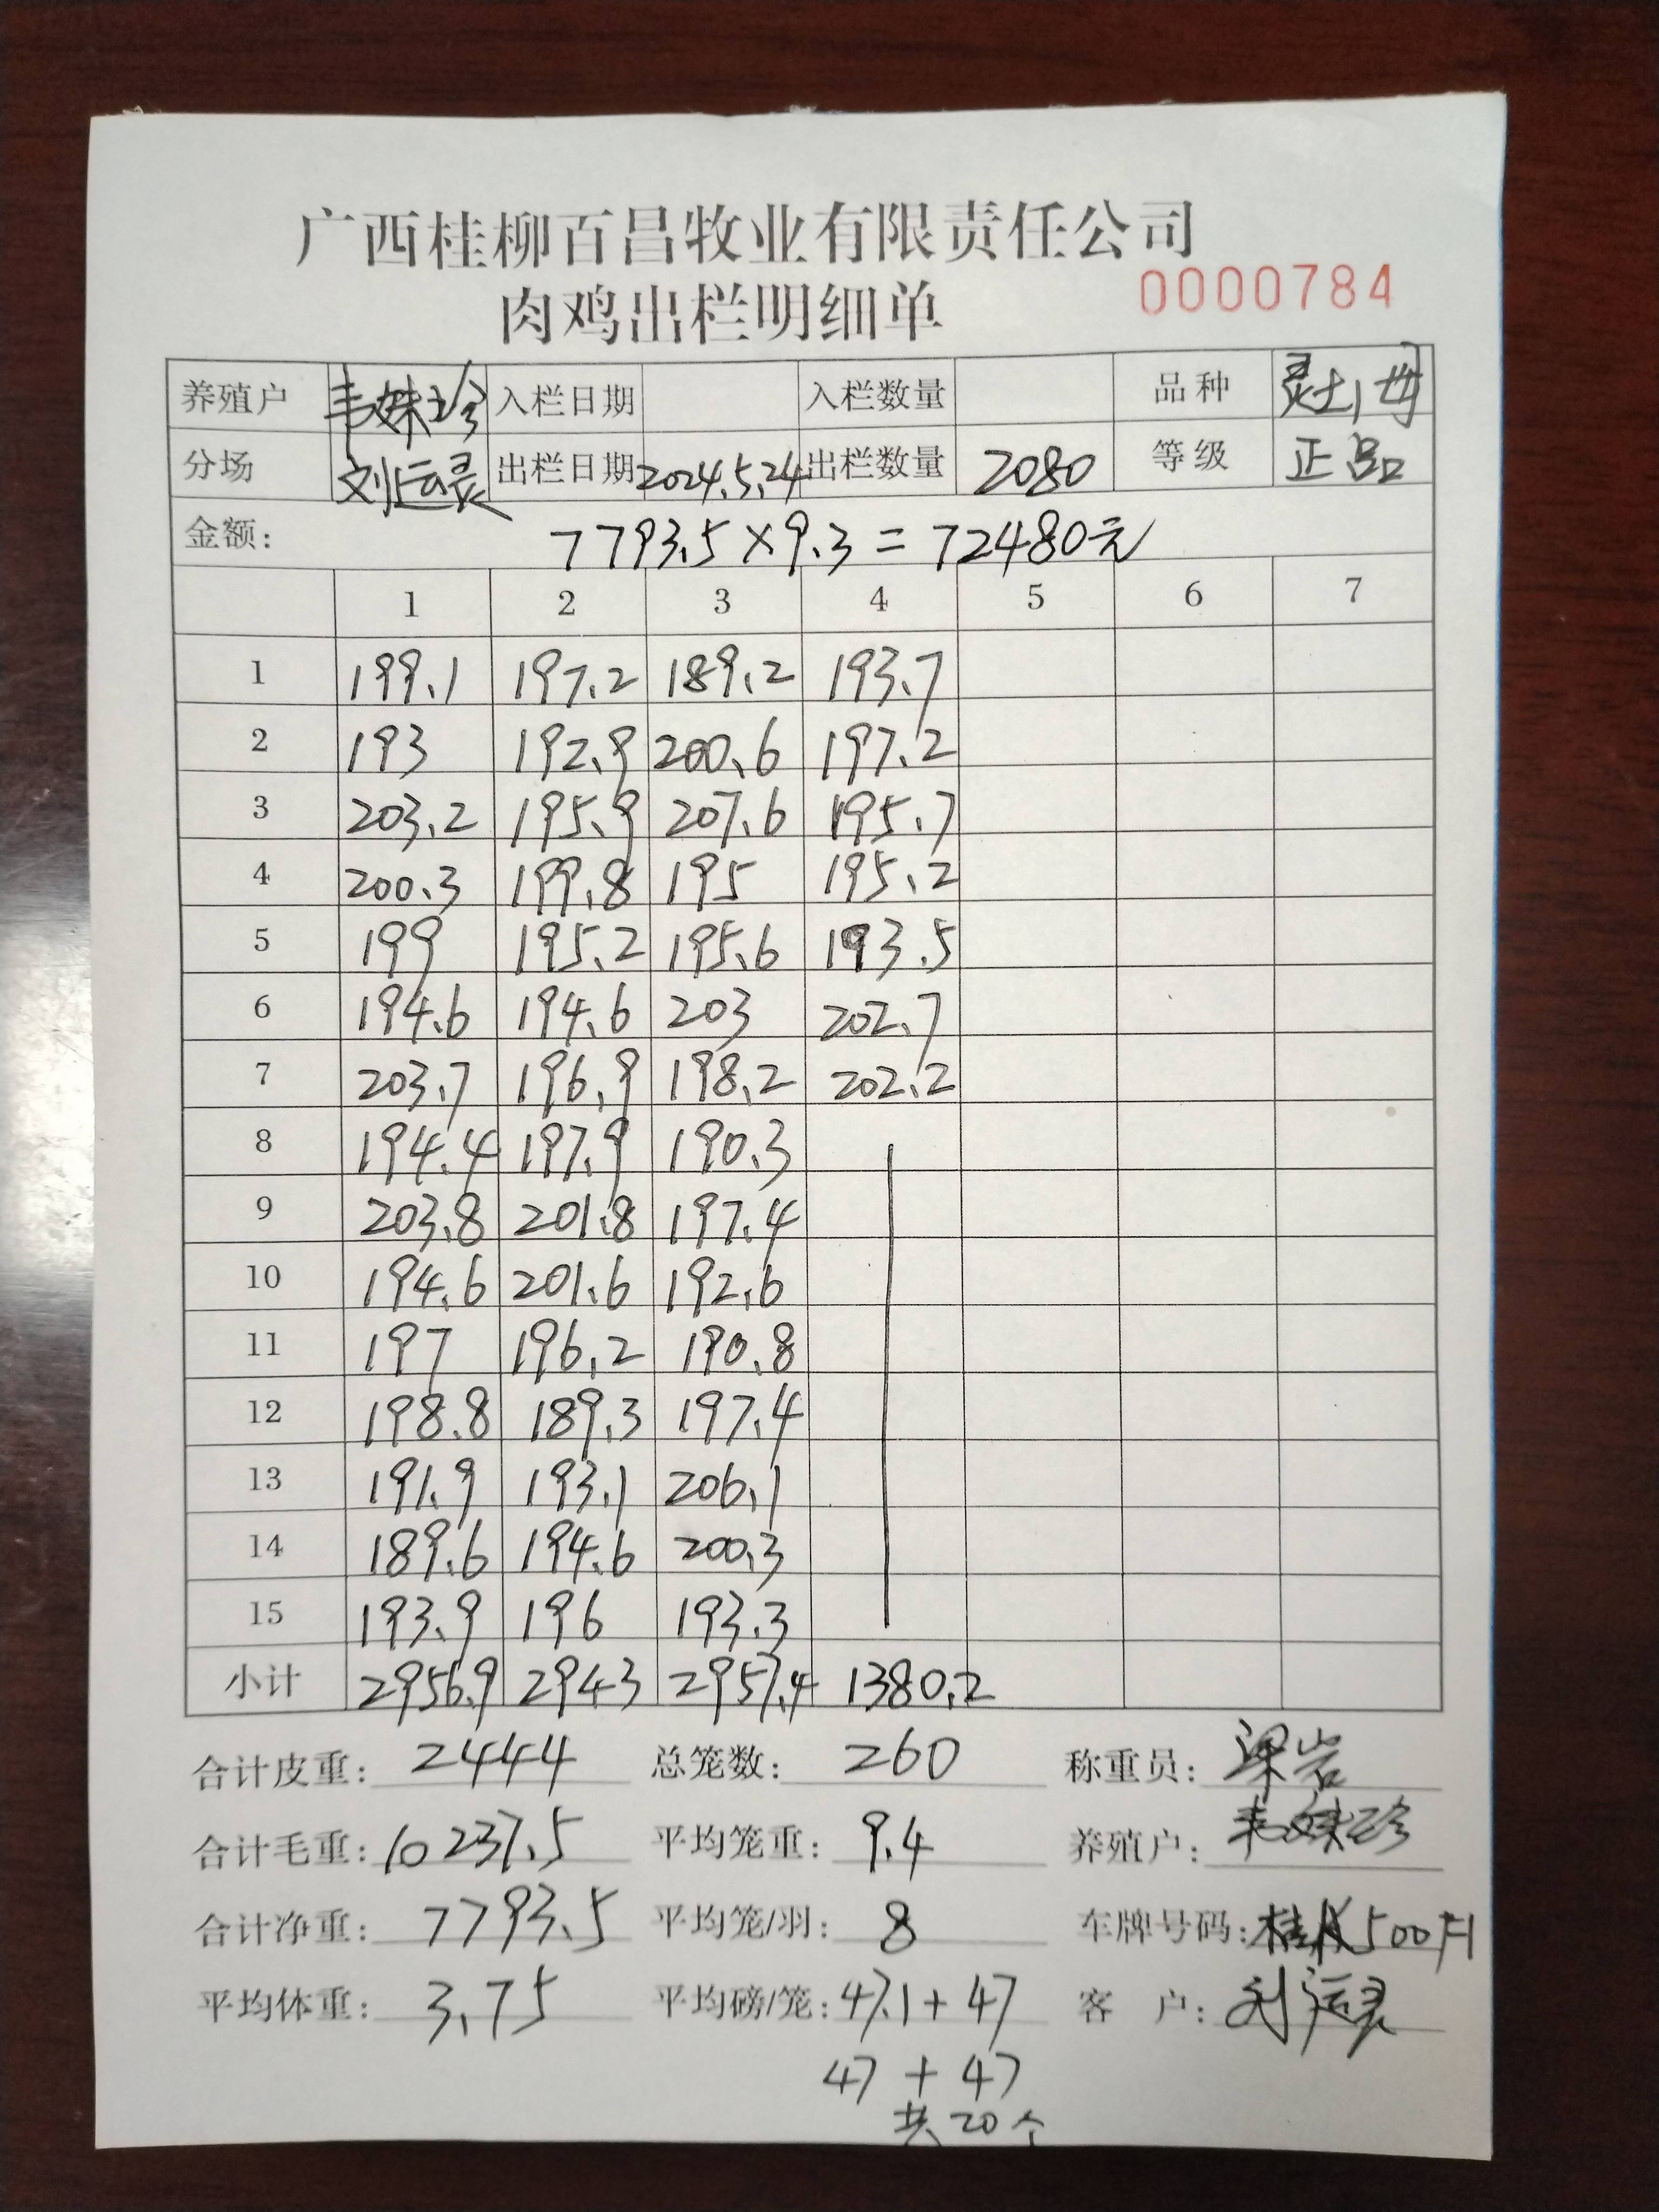 广西桂柳百昌牧业有限责任公司
肉鸡出栏明细单 0000784
养殖户 韦妹珍 入栏日期 入栏数量 品种 灵土1母
分场 刘运灵 出栏日期 2024.5.24 出栏数量 2080 等级 正品
金额: 7793.5×9.3=72480元
1 2 3 4 5 6 7
1 199.1 197.2 189.2 193.7
2 193 192.9 200.6 197.2
3 203.2 195.9 207.6 195.7
4 200.3 199.8 195 195.2
5 199 195.2 195.6 193.5
6 194.6 194.6 203 202.7
7 203.7 196.9 198.2 202.2
8 194.4 197.9 190.3
9 203.8 201.8 197.4
10 194.6 201.6 192.6
11 197 196.2 190.8
12 198.8 189.3 197.4
13 191.9 193.1 206.1
14 189.6 194.6 200.3
15 193.9 196 193.3
小计 2956.9 2943 2957.4 1380.2
合计皮重: 2444 总笼数: 260 称重员: 梁岩
合计毛重: 10237.5 平均笼重: 9.4 养殖户: 韦妹珍
合计净重: 7793.5 平均笼/羽: 8 车牌号码: 桂 500
平均体重: 3.75 平均磅/笼: 47.1+47 客 户: 刘运灵
47+47
共20个